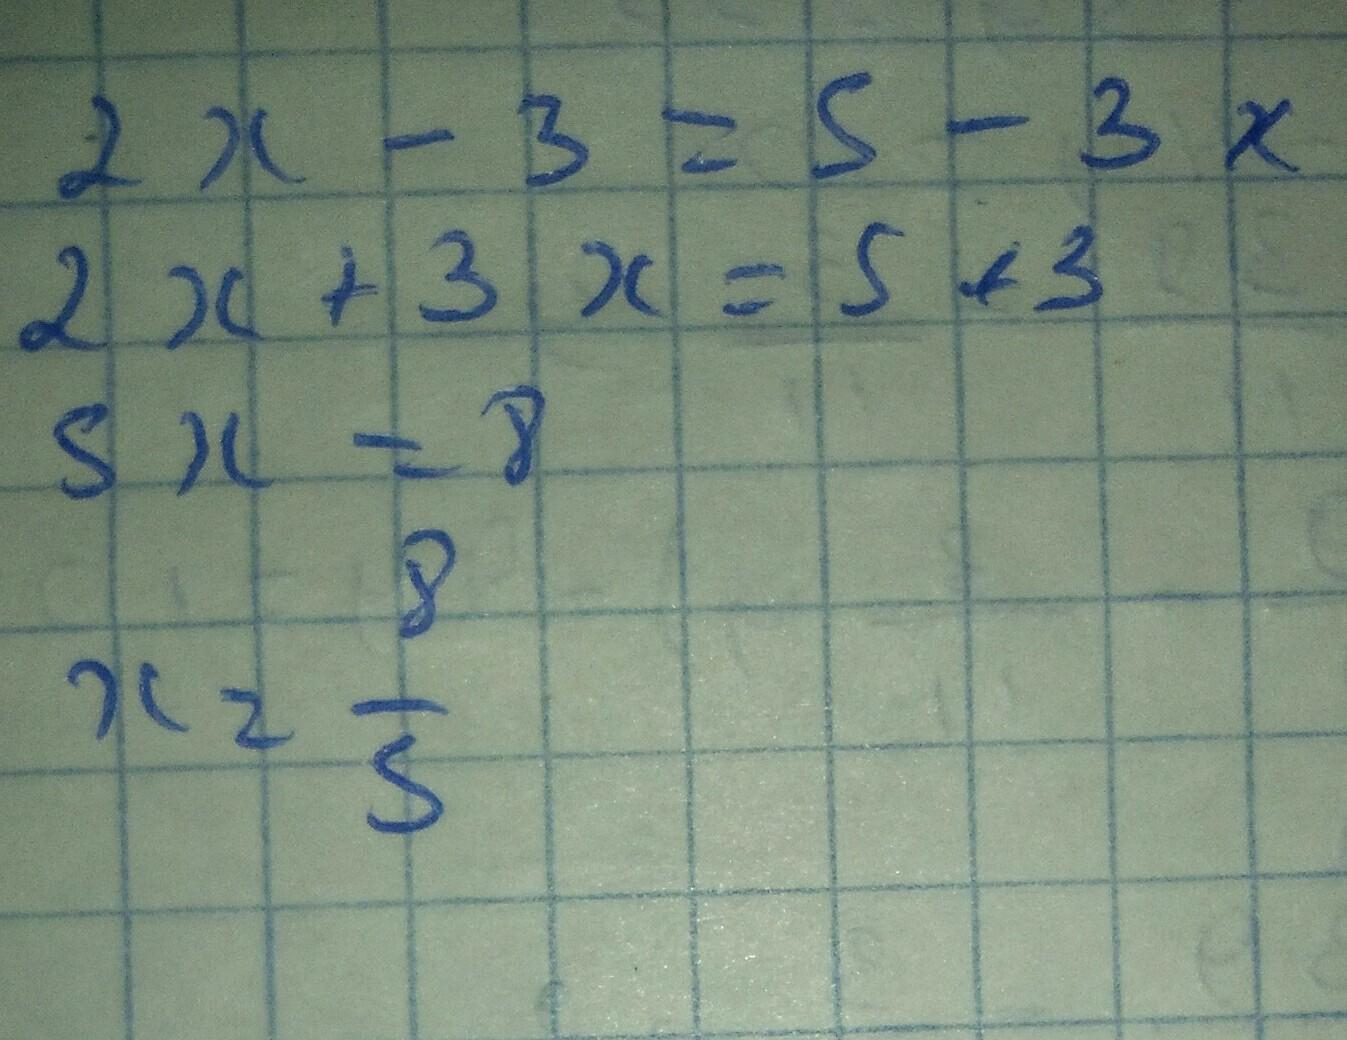 2x - 3 = 5 - 3x
2x + 3x = 5 + 3
5x = 8
x = 8/5